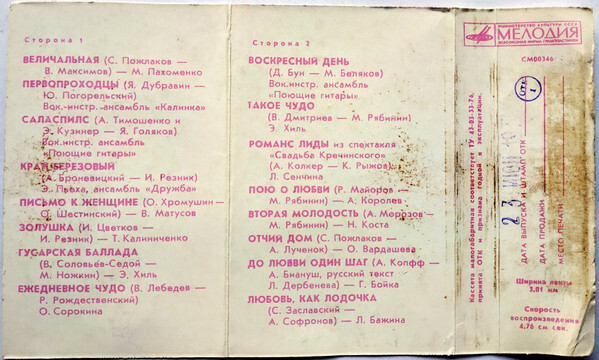 Сторона 1
ВЕЛИЧАЛЬНАЯ (С. Пожлаков —
В. Максимов) — М. Пахоменко
ПЕРВОПРОХОДЦЫ (Я. Дубравин —
Ю. Погорельский)
Вок.-инстр. ансамбль «Калинка»
САЛАСПИЛС (А. Тимошенко и
Э. Кузинер — Я. Голяков)
Вок.инстр. ансамбль
«Поющие гитары»
КРАЙ БЕРЕЗОВЫЙ
(А. Броневицкий — И. Резник)
Э. Пьеха, ансамбль «Дружба»
ПИСЬМО К ЖЕНЩИНЕ (О. Хромушин —
О. Шестинский) — В. Матусов
ЗОЛУШКА (И. Цветков —
И. Резник) — Т. Калиниченко
ГУСАРСКАЯ БАЛЛАДА
(В. Соловьев-Седой —
М. Ножкин) — Э. Хиль
ЕЖЕДНЕВНОЕ ЧУДО (В. Лебедев —
Р. Рождественский)
О. Сорокина
Сторона 2
ВОСКРЕСНЫЙ ДЕНЬ
(Д. Бун — М. Беляков)
Вок.инстр. ансамбль
«Поющие гитары»
ТАКОЕ ЧУДО
(В. Дмитриев — М. Рябинин)
Э. Хиль
РОМАНС ЛИДЫ из спектакля
«Свадьба Кречинского»
(А. Колкер — К. Рыжов)
Л. Сенчина
ПОЮ О ЛЮБВИ (Р. Майоров —
М. Рябинин) — А. Королев
ВТОРАЯ МОЛОДОСТЬ (А. Морозов —
М. Рябинин) — Н. Коста
ОТЧИЙ ДОМ (С. Пожлаков —
А. Лученок) — О. Вардашева
ДО ЛЮБВИ ОДИН ШАГ (А. Копфф —
А. Биануш, русский текст
Л. Дербенева) — Г. Бойка
ЛЮБОВЬ, КАК ЛОДОЧКА
(С. Заславский —
А. Софронов) — Л. Бажина
Кассета малогабаритная соответствует ТУ 43-03-33-74,
принята ОТК и признана годной к эксплуатации.
МИНИСТЕРСТВО КУЛЬТУРЫ СССР
МЕЛОДИЯ
ВСЕСОЮЗНАЯ ФИРМА ГРАМПЛАСТИНОК
СМ00346
23
ДАТА ВЫПУСКА И ШТАМП ОТК
ДАТА ПРОДАЖИ
МЕСТО ПЕЧАТИ
Ширина ленты
3,81 мм
Скорость
воспроизведения
4,76 см сек.